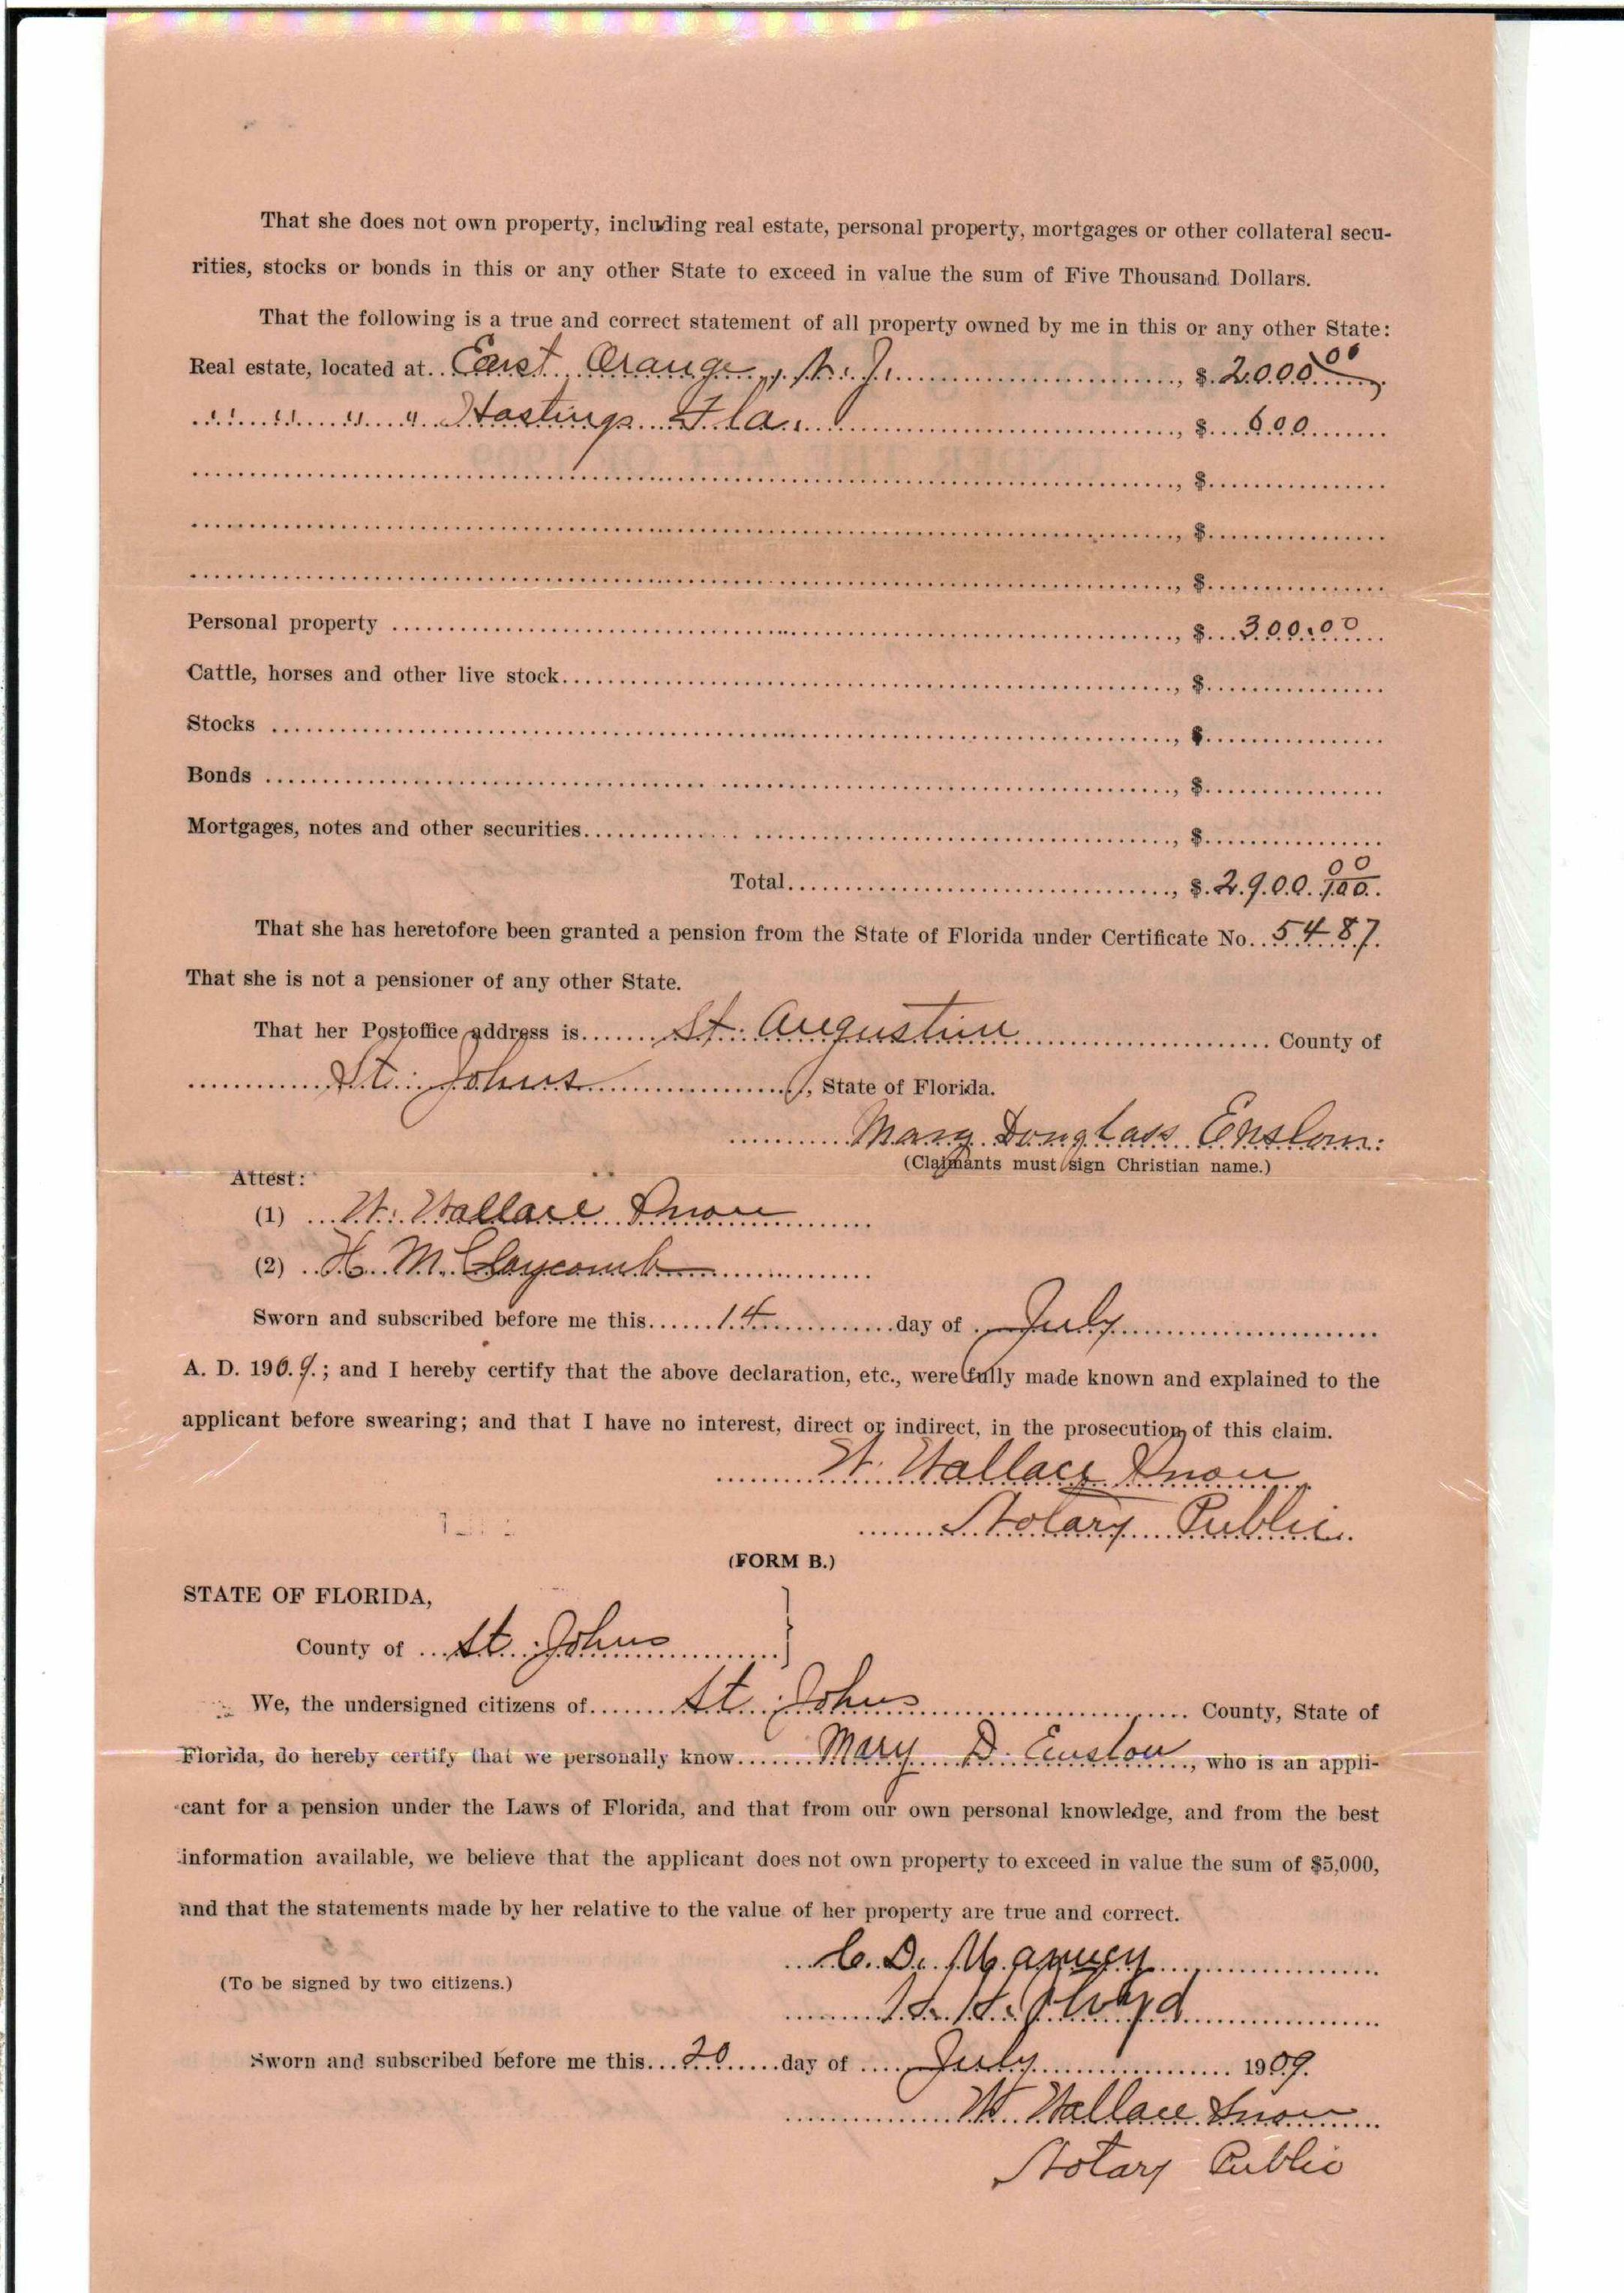 That she does not own property, including real estate, personal property, mortgages or other collateral secu-
rities, stocks or bonds in this or any other State to exceed in value the sum of Five Thousand Dollars.
That the following is a true and correct statement of all property owned by me in this or any other State:
Real estate, located at East Orange, N. J. , $ 2000 00
" " " " Hastings Fla. , $ 600
, $
, $
, $
Personal property , $ 300.00
Cattle, horses and other live stock , $
Stocks , $
Bonds , $
Mortgages, notes and other securities , $
Total , $ 2900 00/100
That she has heretofore been granted a pension from the State of Florida under Certificate No. 5487.
That she is not a pensioner of any other State.
That her Postoffice address is St. Augustine County of
St. Johns , State of Florida.
Mary Douglass Enslow.
(Claimants must sign Christian name.)
Attest:
(1) W. Wallace Snow
(2) H. M. Claycomb
Sworn and subscribed before me this 14 day of July
A. D. 1909.; and I hereby certify that the above declaration, etc., were fully made known and explained to the
applicant before swearing; and that I have no interest, direct or indirect, in the prosecution of this claim.
W. Wallace Snow
Notary Public.
(FORM B.)
STATE OF FLORIDA,
County of St. Johns
We, the undersigned citizens of St. Johns County, State of
Florida, do hereby certify that we personally know Mary D. Enslow , who is an appli-
cant for a pension under the Laws of Florida, and that from our own personal knowledge, and from the best
information available, we believe that the applicant does not own property to exceed in value the sum of $5,000,
and that the statements made by her relative to the value of her property are true and correct.
C. D.
(To be signed by two citizens.)
Sworn and subscribed before me this 20 day of July 1909.
W. Wallace Snow
Notary Public